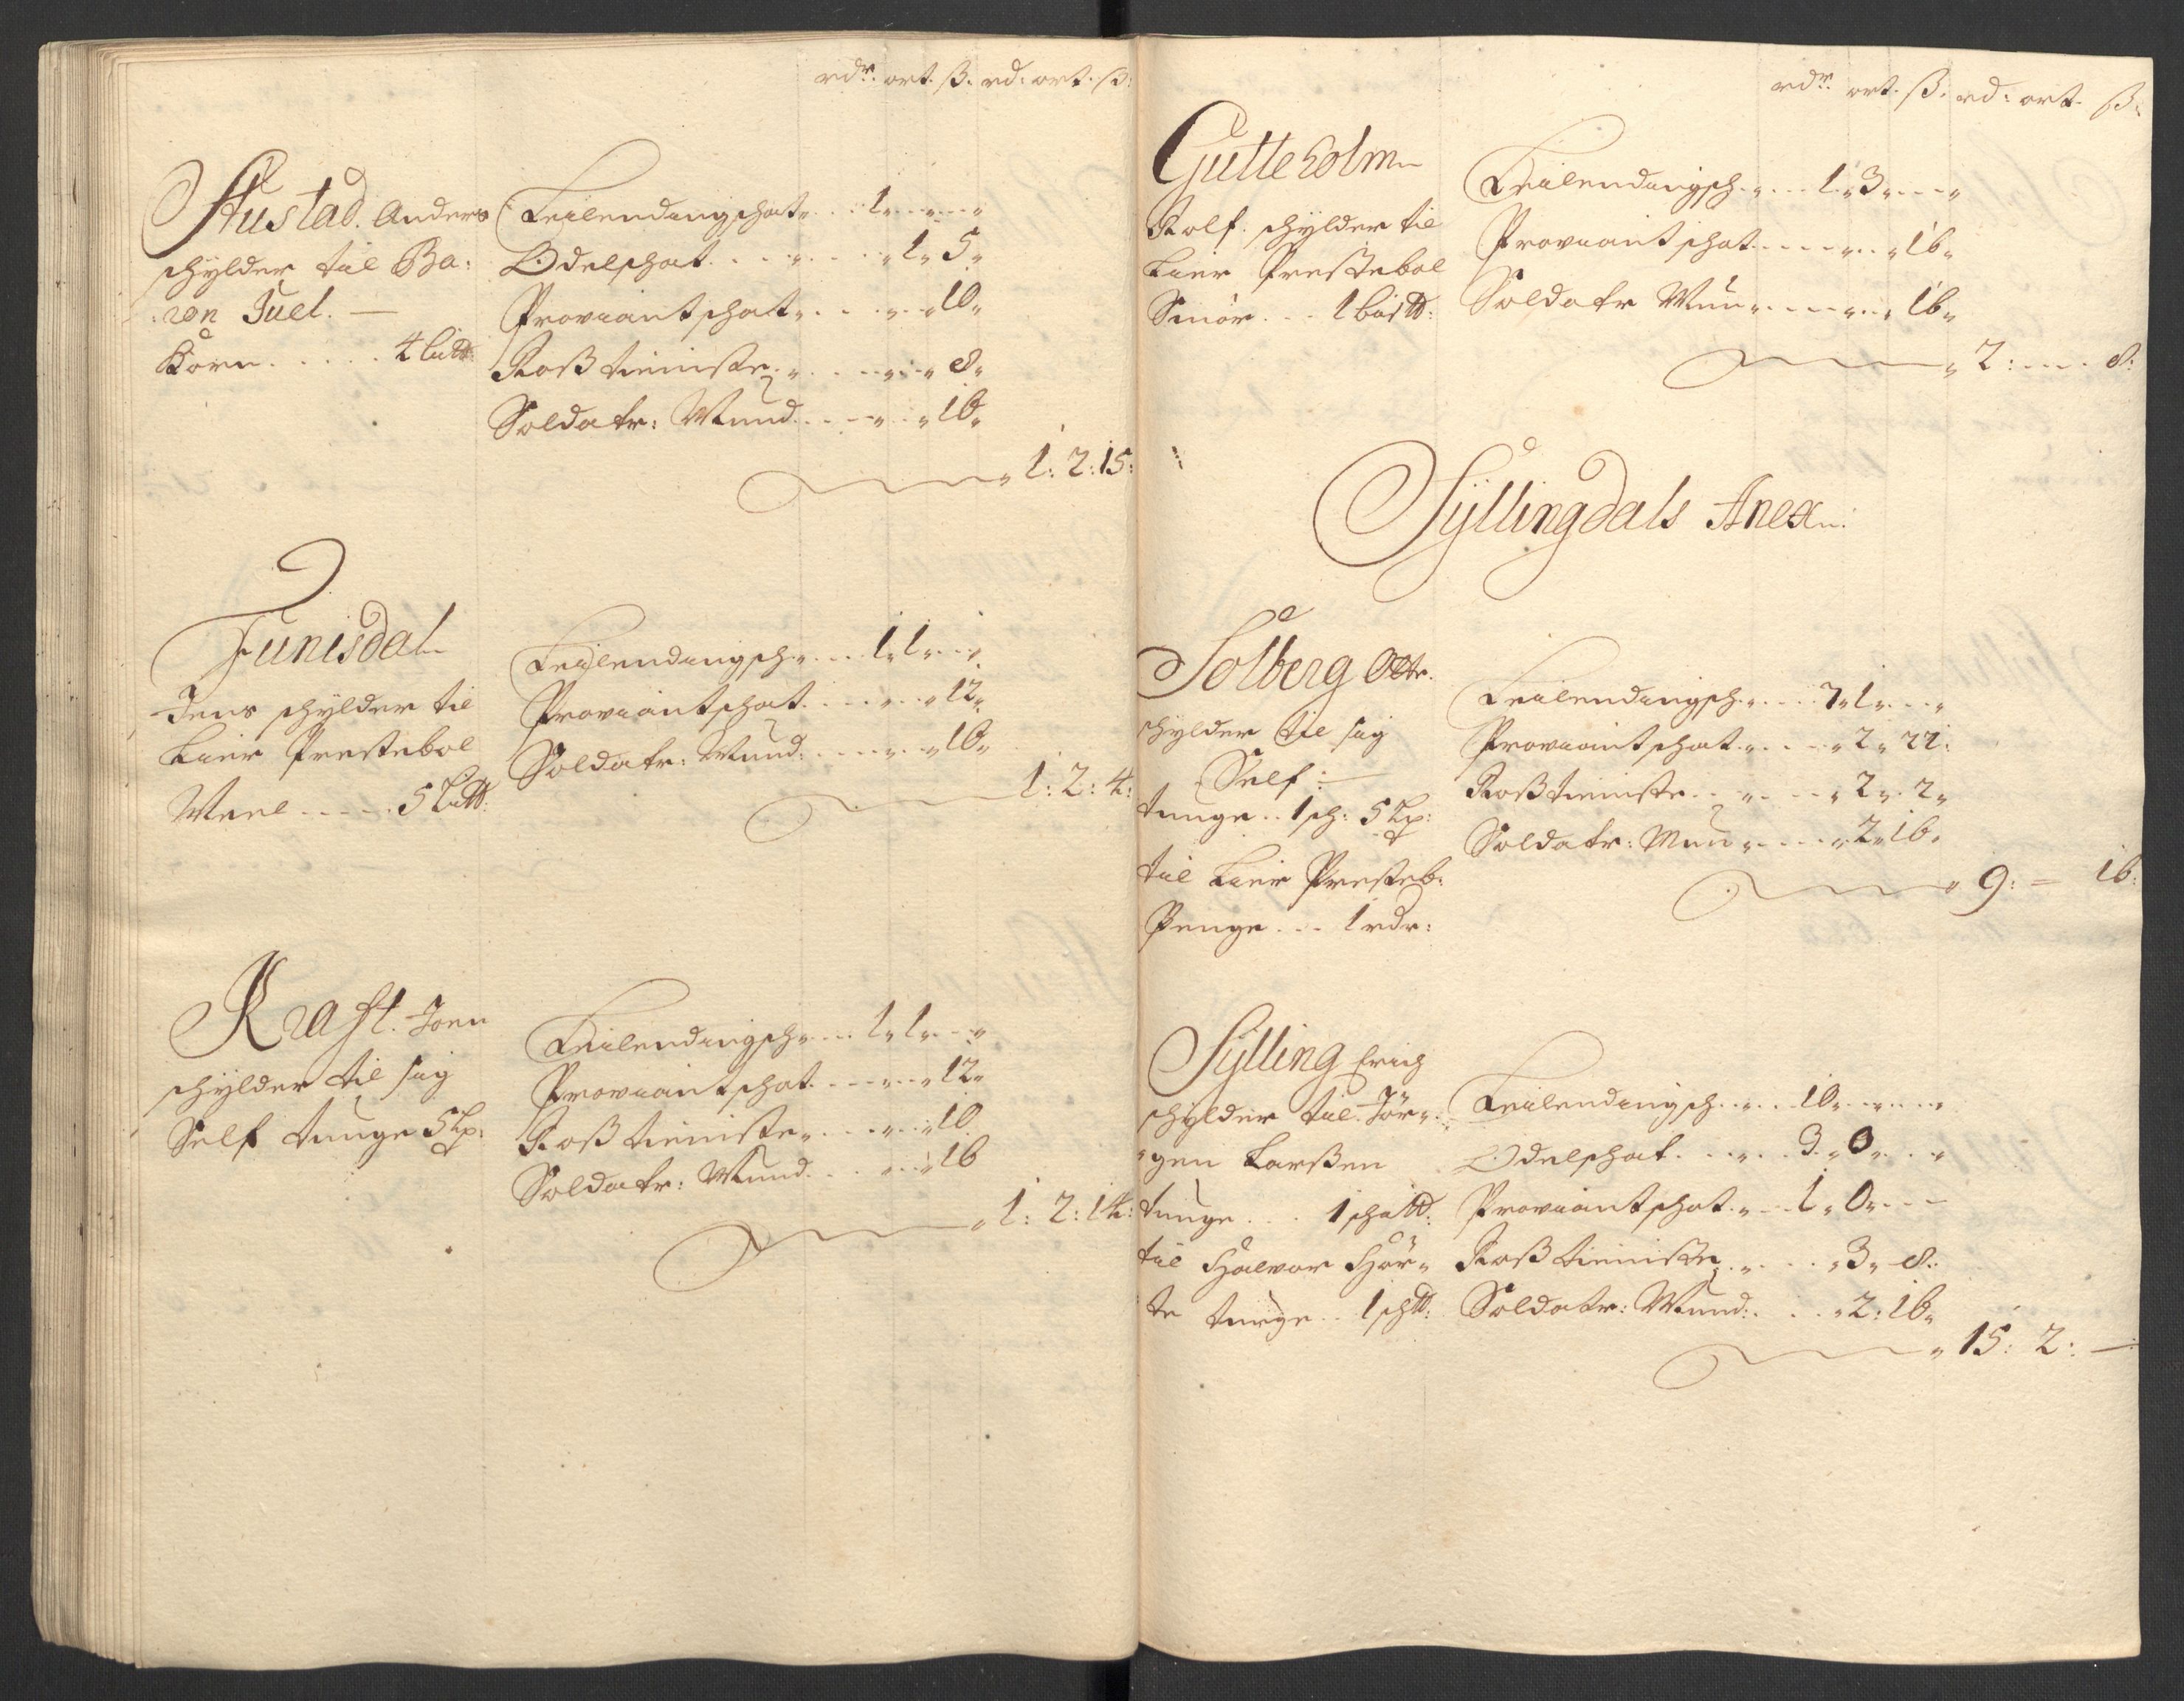 rdr. ort. ß. rd: ort. ß:
Hustad. Anders
schylder til Ba:
:ron Juel. —
Korn . . . . . 4 Lidtt:
Leilendingschat „ . . . 1 „ . „ . . „
Odelschat . . . „ . . . „ 1 „ 5 „
Proviantschat „ . . . „ . . „ 10 „
Roßtieniste „ . . . . „ . . „ 8 „
Soldatr: Mund . . . . „ . . „ 16 „
1: 2: 15:
Funisdal
Jens schylder til
Lier Prestebol
Meel . . . . . 5 Lidtt:
Leilendingsch „ . . . 1 „ 1 „ . . „
Proviantschat . . . . „ . . „ 12 „
Soldatr: Mund: . . . . „ . . „ 16 „
1: 2: 4:
Kraft. Joen
schylder til sig
Self tunge 5 Lp:
Leilendingsch „ . . . 1 „ 1 „ . . „
Proviantschat . . . . „ . . „ 12 „
Roßtieniste „ . . . . „ . . „ 10
Soldatr: Mund . . . „ . . „ 16
1: 2: 14:
rdr. ort. ß. rd: ort. ß:
Gutteholm
Rolf. schylder til
Lier Prestebol
Smör . . . 1 bidtt:
Leilendingsch . „ . . . 1 „ 3 „ . . . „
Proviantschat . . . . . „ . . „ 16 „
Soldatr Mun „ . . . . „ . . „ 16 „
2: . . . . 8:
Syllingdals Anex:
Solberg Ottr.
schylder til sig
Self: —
tunge . . 1 sch: 5 Lp:
til Lier Presteb:
Penge . . . 1 rdr:
Leilendingsch . „ . . . 7 „ 1 „ . . . „
Proviantschat „ . . . . „ 2 „ 22:
Roßtieniste . . „ . . . . „ 2 „ 2 „
Soldatr: Mun „ . . . . „ 2 „ 16 „
9: = 16:
Sylling Erich
schylder til Jör „:
„ gen Larßen
tunge . . . 1 schtt:
til Halvor Hör „
te tunge . . 1 schtt:
Leilendingsch . . „ . . 10 „ . . „ . . . „
Odelschat . . . „ . . 3 „ 0 „ . . . „
Proviantschat . „ . . . 1 „ 0 „ . . –
Roßtieniste „ . . . . „ 3 „ 8 :
Soldatr: Mund: . . . . „ 2: 16 „
15: 2: —